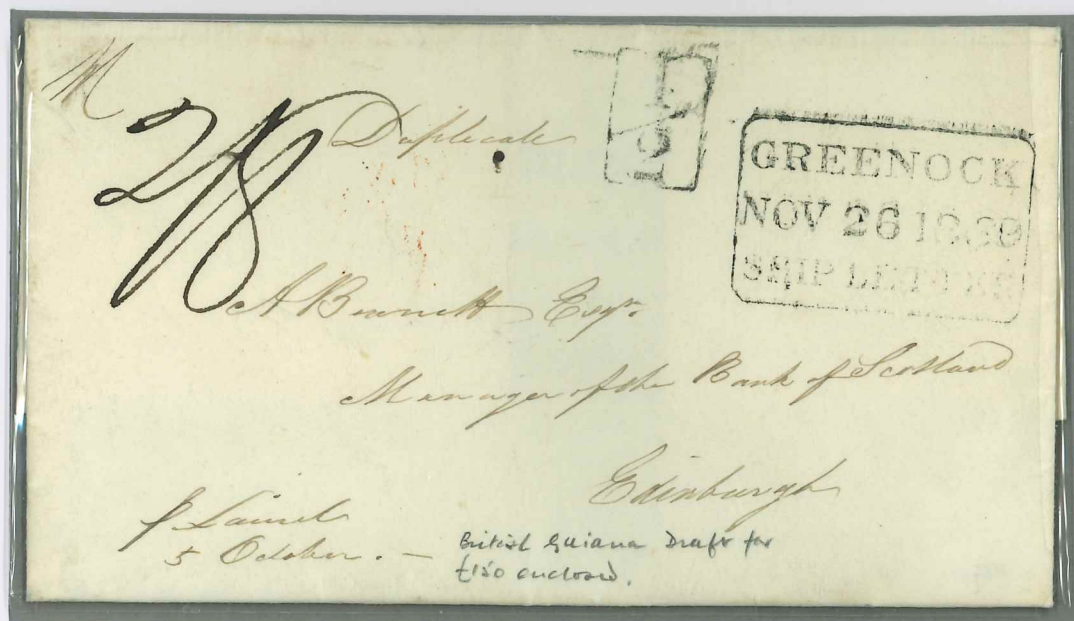 M
2/8
Duplicate
1/2
GREENOCK
NOV 26 1839
SHIP LETTER
A Bennett Esqr.
Manager of the Bank of Scotland
Edinburgh
p Laurel
5 October. —
British Guiana Draft for
£150 enclosed.